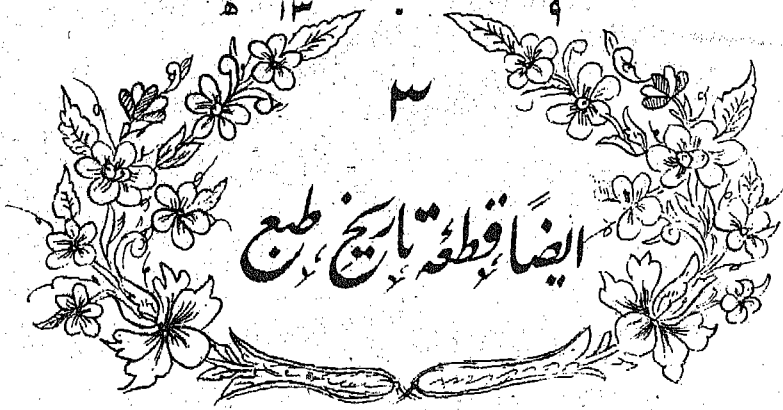 ۹ ۰ ۱۳ ھ
۳
ایضاً قطعۂ تاریخ طبع